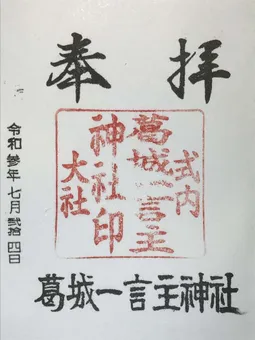 奉拝
式内
葛城一言主
神社印
大社
葛城一言主神社
令和參年七月貳拾四日